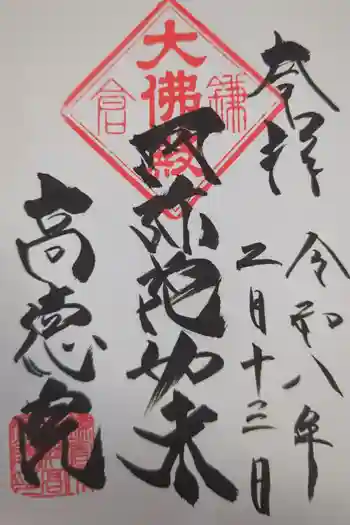 奉拝
令和八年
二月十三日
大佛殿
鎌倉
阿弥陀如来
高徳院